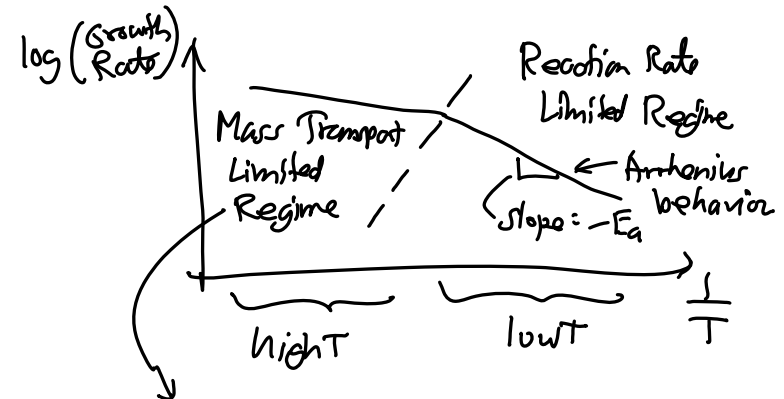 log (Growth
Rate)
Mass Transport
Limited
Regime
Reaction Rate
Limited Regime
Arrhenius
behavior
slope = -Ea
high T
low T
1
T